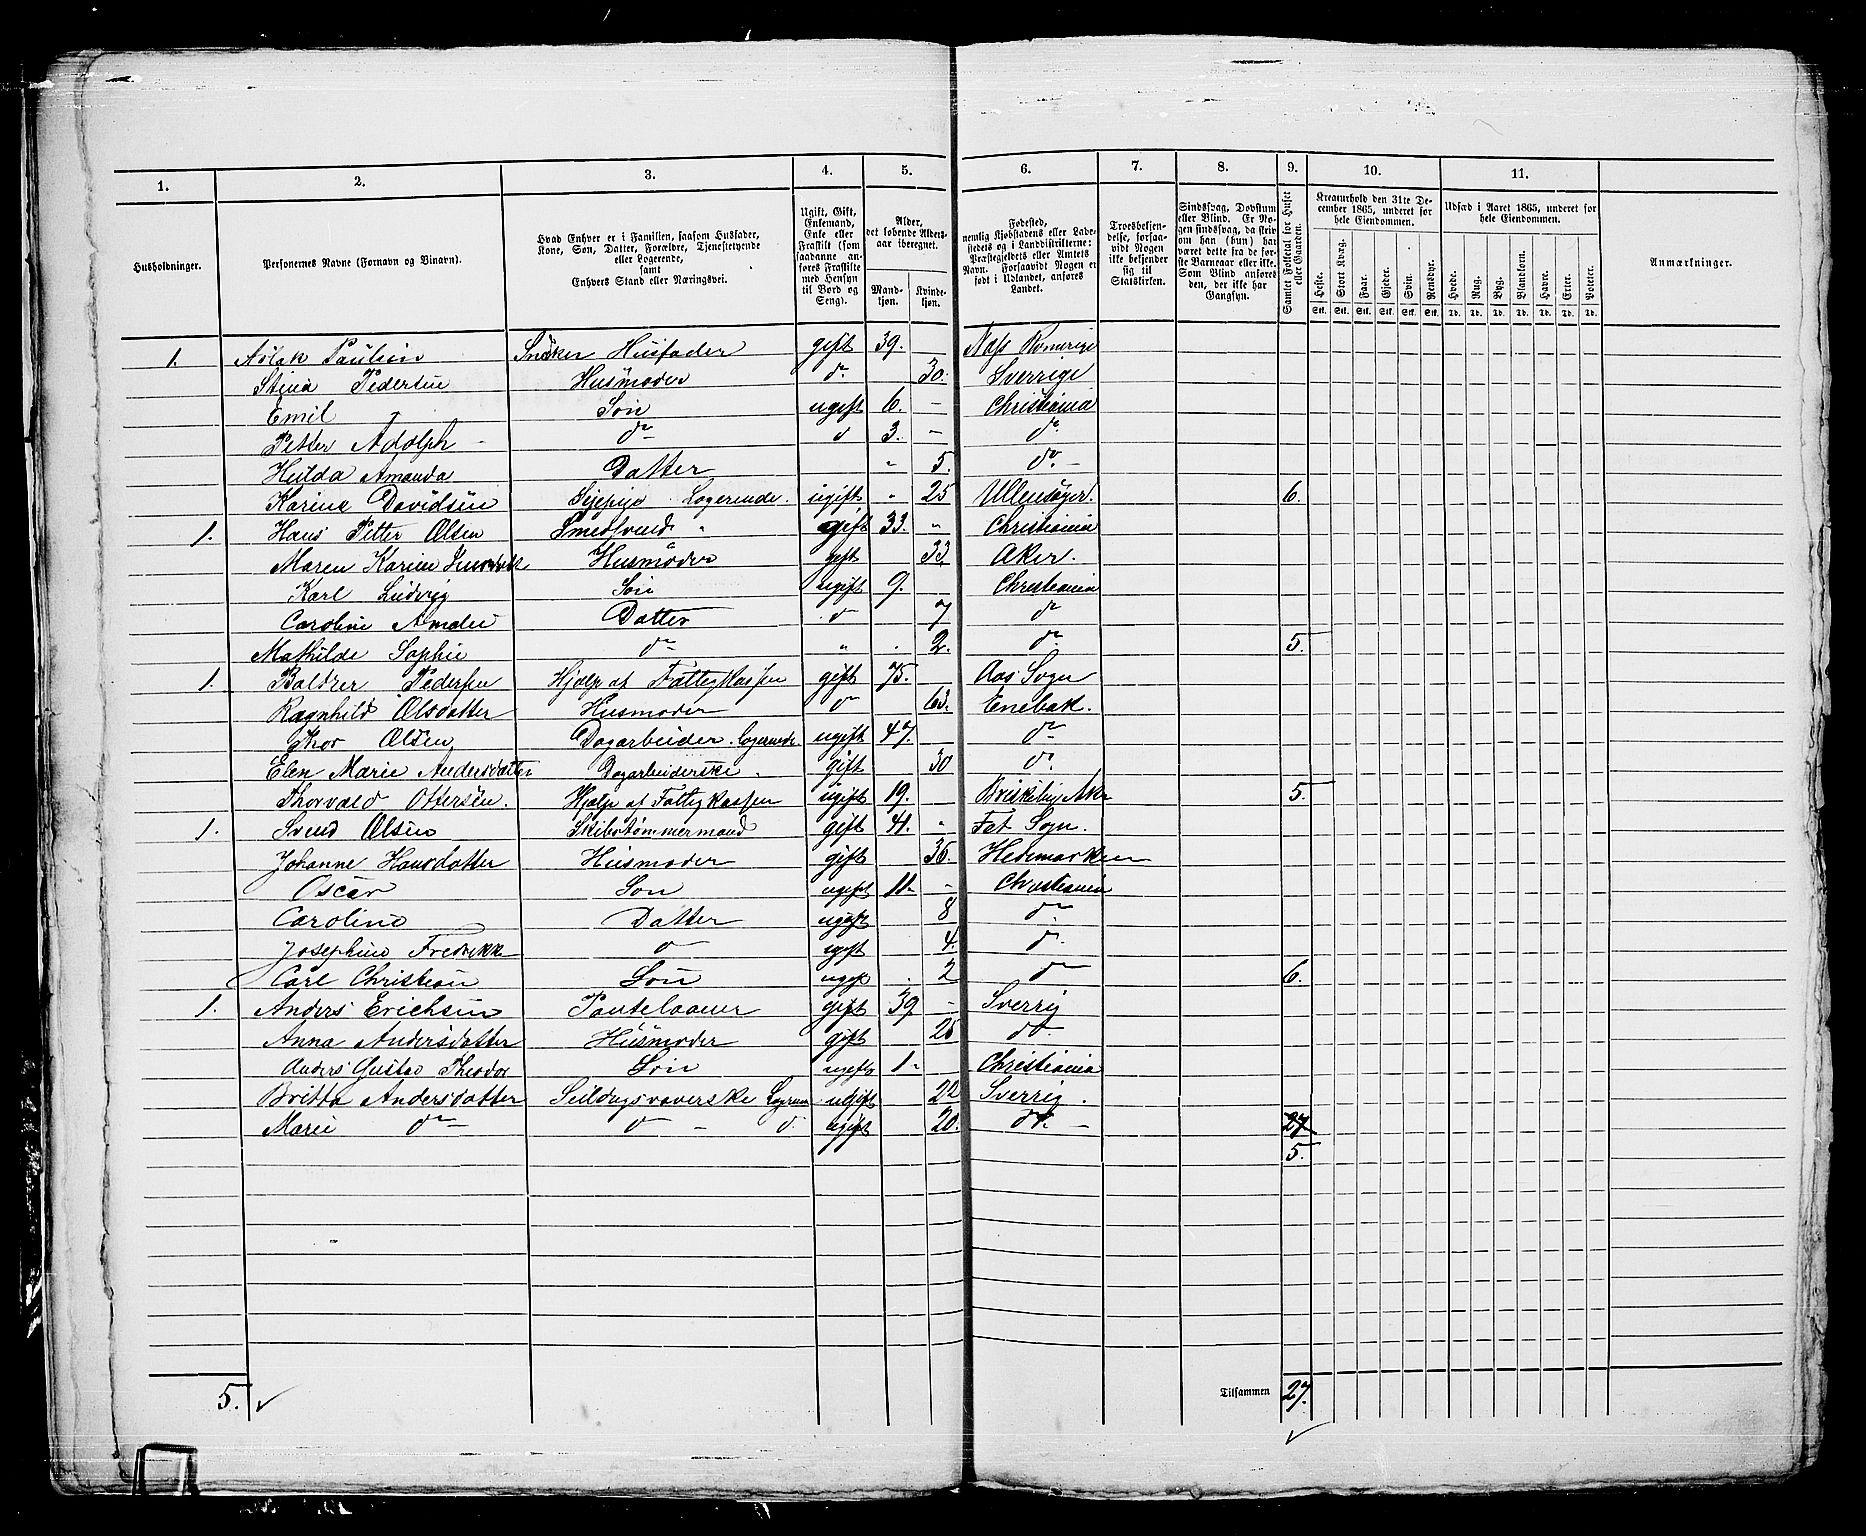 1. 2. 3. 4. 5. 6. 7. 8. 9. 10. 11.
Husholdninger.
Personernes Navne (Fornavn og Binavn).
Hvad Enhver er i Familien, saasom Husfader, Kone, Søn, Datter, Forældre, Tjenestetyende eller Logerende, samt Enhvers Stand eller Næringsvei.
Ugift, Gift, Enkemand, Enke eller Fraskilt (som saadanne anføres Fraskilte med Hensyn til Bord og Seng).
Alder, det løbende Aldersaar iberegnet.
Mandkjøn. Kvindekjøn.
Fødested, nemlig Kjøbstadens eller Ladestedets og i Landdistrikterne: Præstegjeldets eller Amtets Navn. Forsaavidt Nogen er født i Udlandet, anføres Landet.
Troesbekjendelse, forsaavidt Nogen ikke bekjender sig til Statskirken.
Sindssvag, Døvstum eller Blind. Er Nogen sindssvag, da skrives om han (hun) har været dette fra de første Barneaar eller ikke. Som Blind ansøres den, der ikke har Gangsyn.
Samlet Folketal for Huset eller Gaarden.
Kreaturhold den 31te December 1865, underet for hele Eiendommen.
Heste. Stort Kvæg. Faar. Gjeder. Svin. Rensdyr.
Stk. Stk. Stk. Stk. Stk. Stk.
Udsæd i Aaret 1865, underet for hele Eiendommen.
Hvede. Rug. Byg. Blandkorn. Havre. Erter. Poteter.
Td. Td. Td. Td. Td. Td. Td.
Anmærkninger.
1. Aslak Paulsen Snèker Husfader gift 39. Næss Romerige
Stina Pedersen Husmoder do 30. Sverrige
Emil Søn ugift 6. – Christiania
Petter Adolph – do d 3. – do
Hulda Amanda Datter " 5. do –
Karine Davidsen Syepige Logerende. ugift " 25 Ullensager. 6.
1. Hans Petter Olsen Smedsvend " gift 33. " Christiania
Maren Karine Husmoder gift 33. Aker.
Karl Ludvig Søn ugift 9. Christiania
Caroline Amalie Datter d 7 do
Mathilde Sophie do " . 2. do 5.
1. Baltzer Pedersen Hjælp af Fattigkassen gift 75. Aas Sogn
Ragnhild Olsdatter Husmoder d 63. Enebak.
Thor Olsen Dagarbeider. Logerende. ugift 47. do
Elen Marie Andersdatter Dagarbeiderske. gift 30 do
Thorvald Ottersen. Hjælp af Fattigkassen ugift 19. Briskeby Aker 5.
1. Svend Olsen Skibstømmermand gift 41. " Fet Sogn.
Johanne Hansdatter Husmoder gift 36. Hedemarken
Oscar Søn ugift 11. – Christiania
Caroline Datter ugift 8 do
Josephine Fredrikke d ugift 4. d.
Carl Christian Søn ugift . 2 do 6.
1. Anders Erichsen Pantelaaner gift 39 – Sverrig
Anna Andersdatter Husmoder gift 26 do.
Anders Gustav Theodor Søn ugift 1 – Christiania
Britta Andersdatter Seildugsvæverske Logerende ugift 22 Sverrig.
Marie do d – d. ugift 20. do. – 27
5.
5. Tilsammen 27.